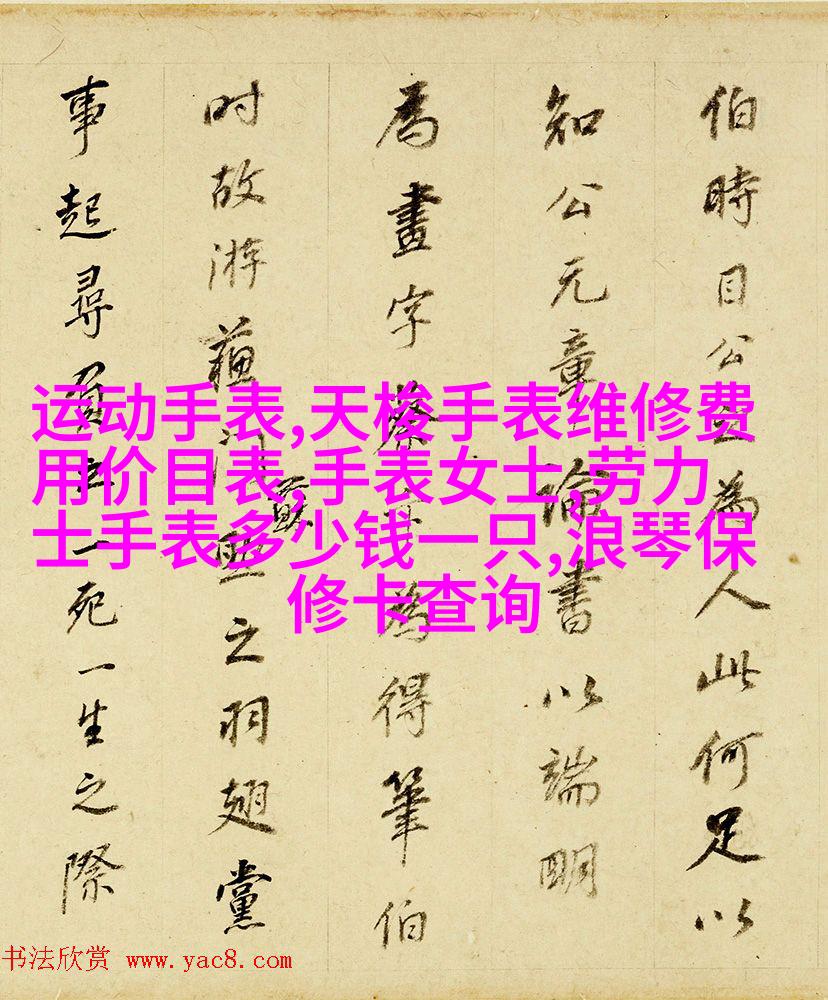 伯時目公為人此何足以
知公元章論書以端明
為畫字蔡為得筆伯
时故游蘓蘇之羽翅黨
事起尋負一死一生之際
运动手表,天梭手表维修费
用价目表,手表女士,劳力
士手表多少钱一只,浪琴保
修卡查询
书法欣赏 www.yac8.com